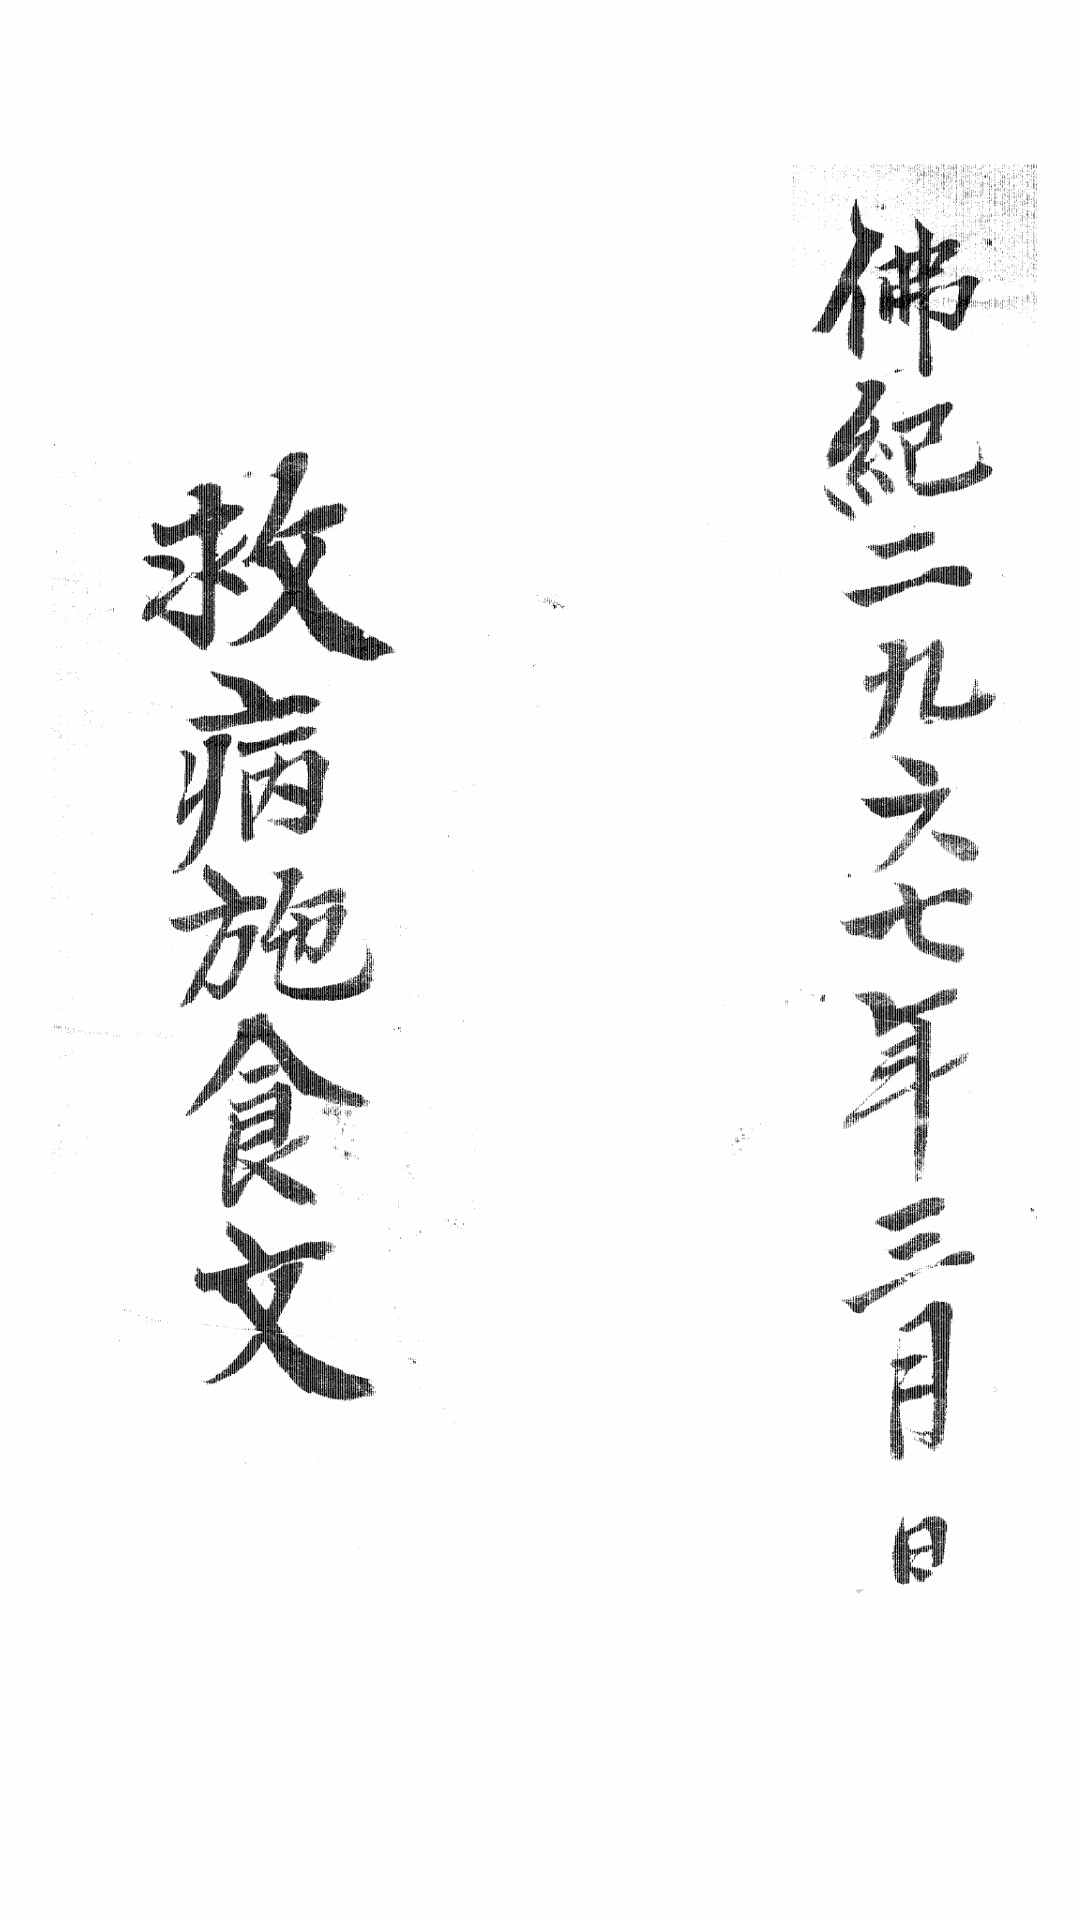 佛紀二九六七年三月 日
救病施食文